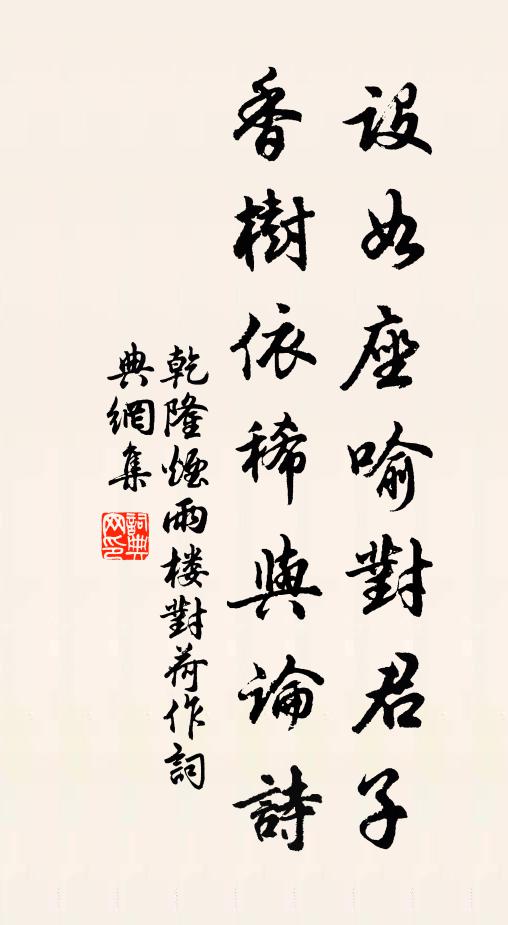 設如座喻對君子
香樹依稀與論詩
乾隆煙雨楼對荷作詞
典網集
詞典
网印